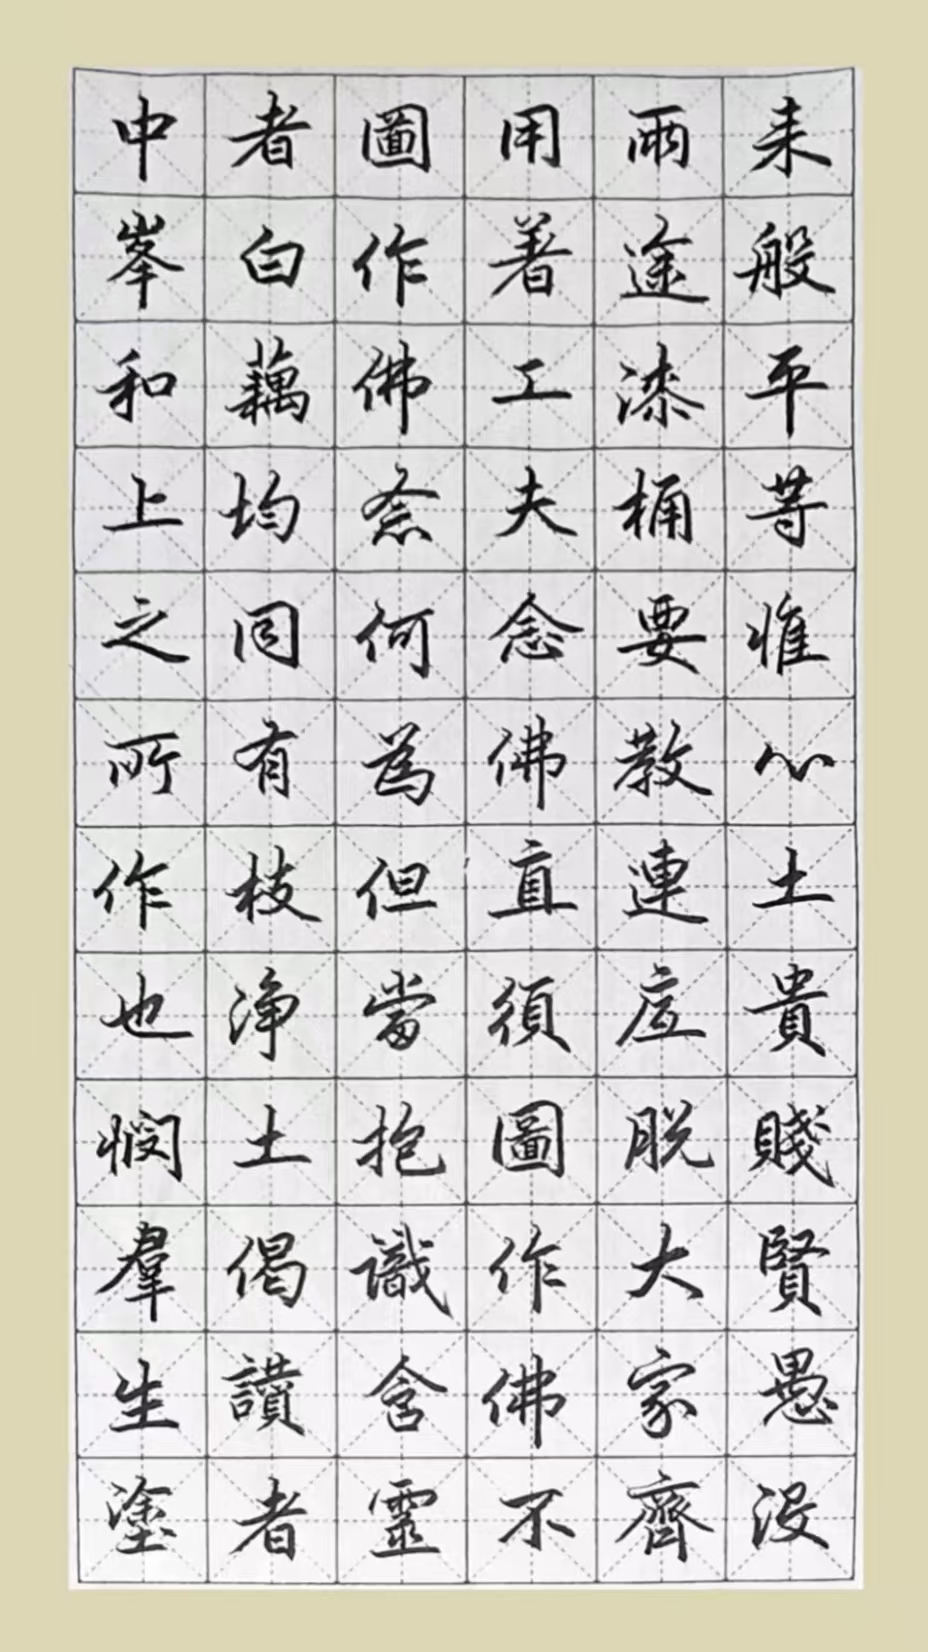 来般平等惟心土貴賤賢愚没
兩途漆桶要教連底脱大家齊
用著工夫念佛直須圖作佛不
圖作佛奈何為但當抱識含靈
者白藕均同有枝淨土偈讃者
中峯和上之所作也憫羣生塗